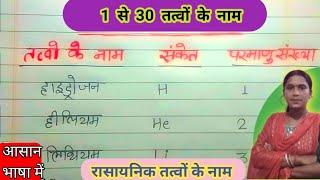 1 से 30 तत्वों के नाम
तत्वो के नाम संकेत परमाणु संख्या
हाइड्रोजन H 1
हीलियम He 2
लिथियम Li 3
आसान
भाषा में
रासायनिक तत्वों के नाम